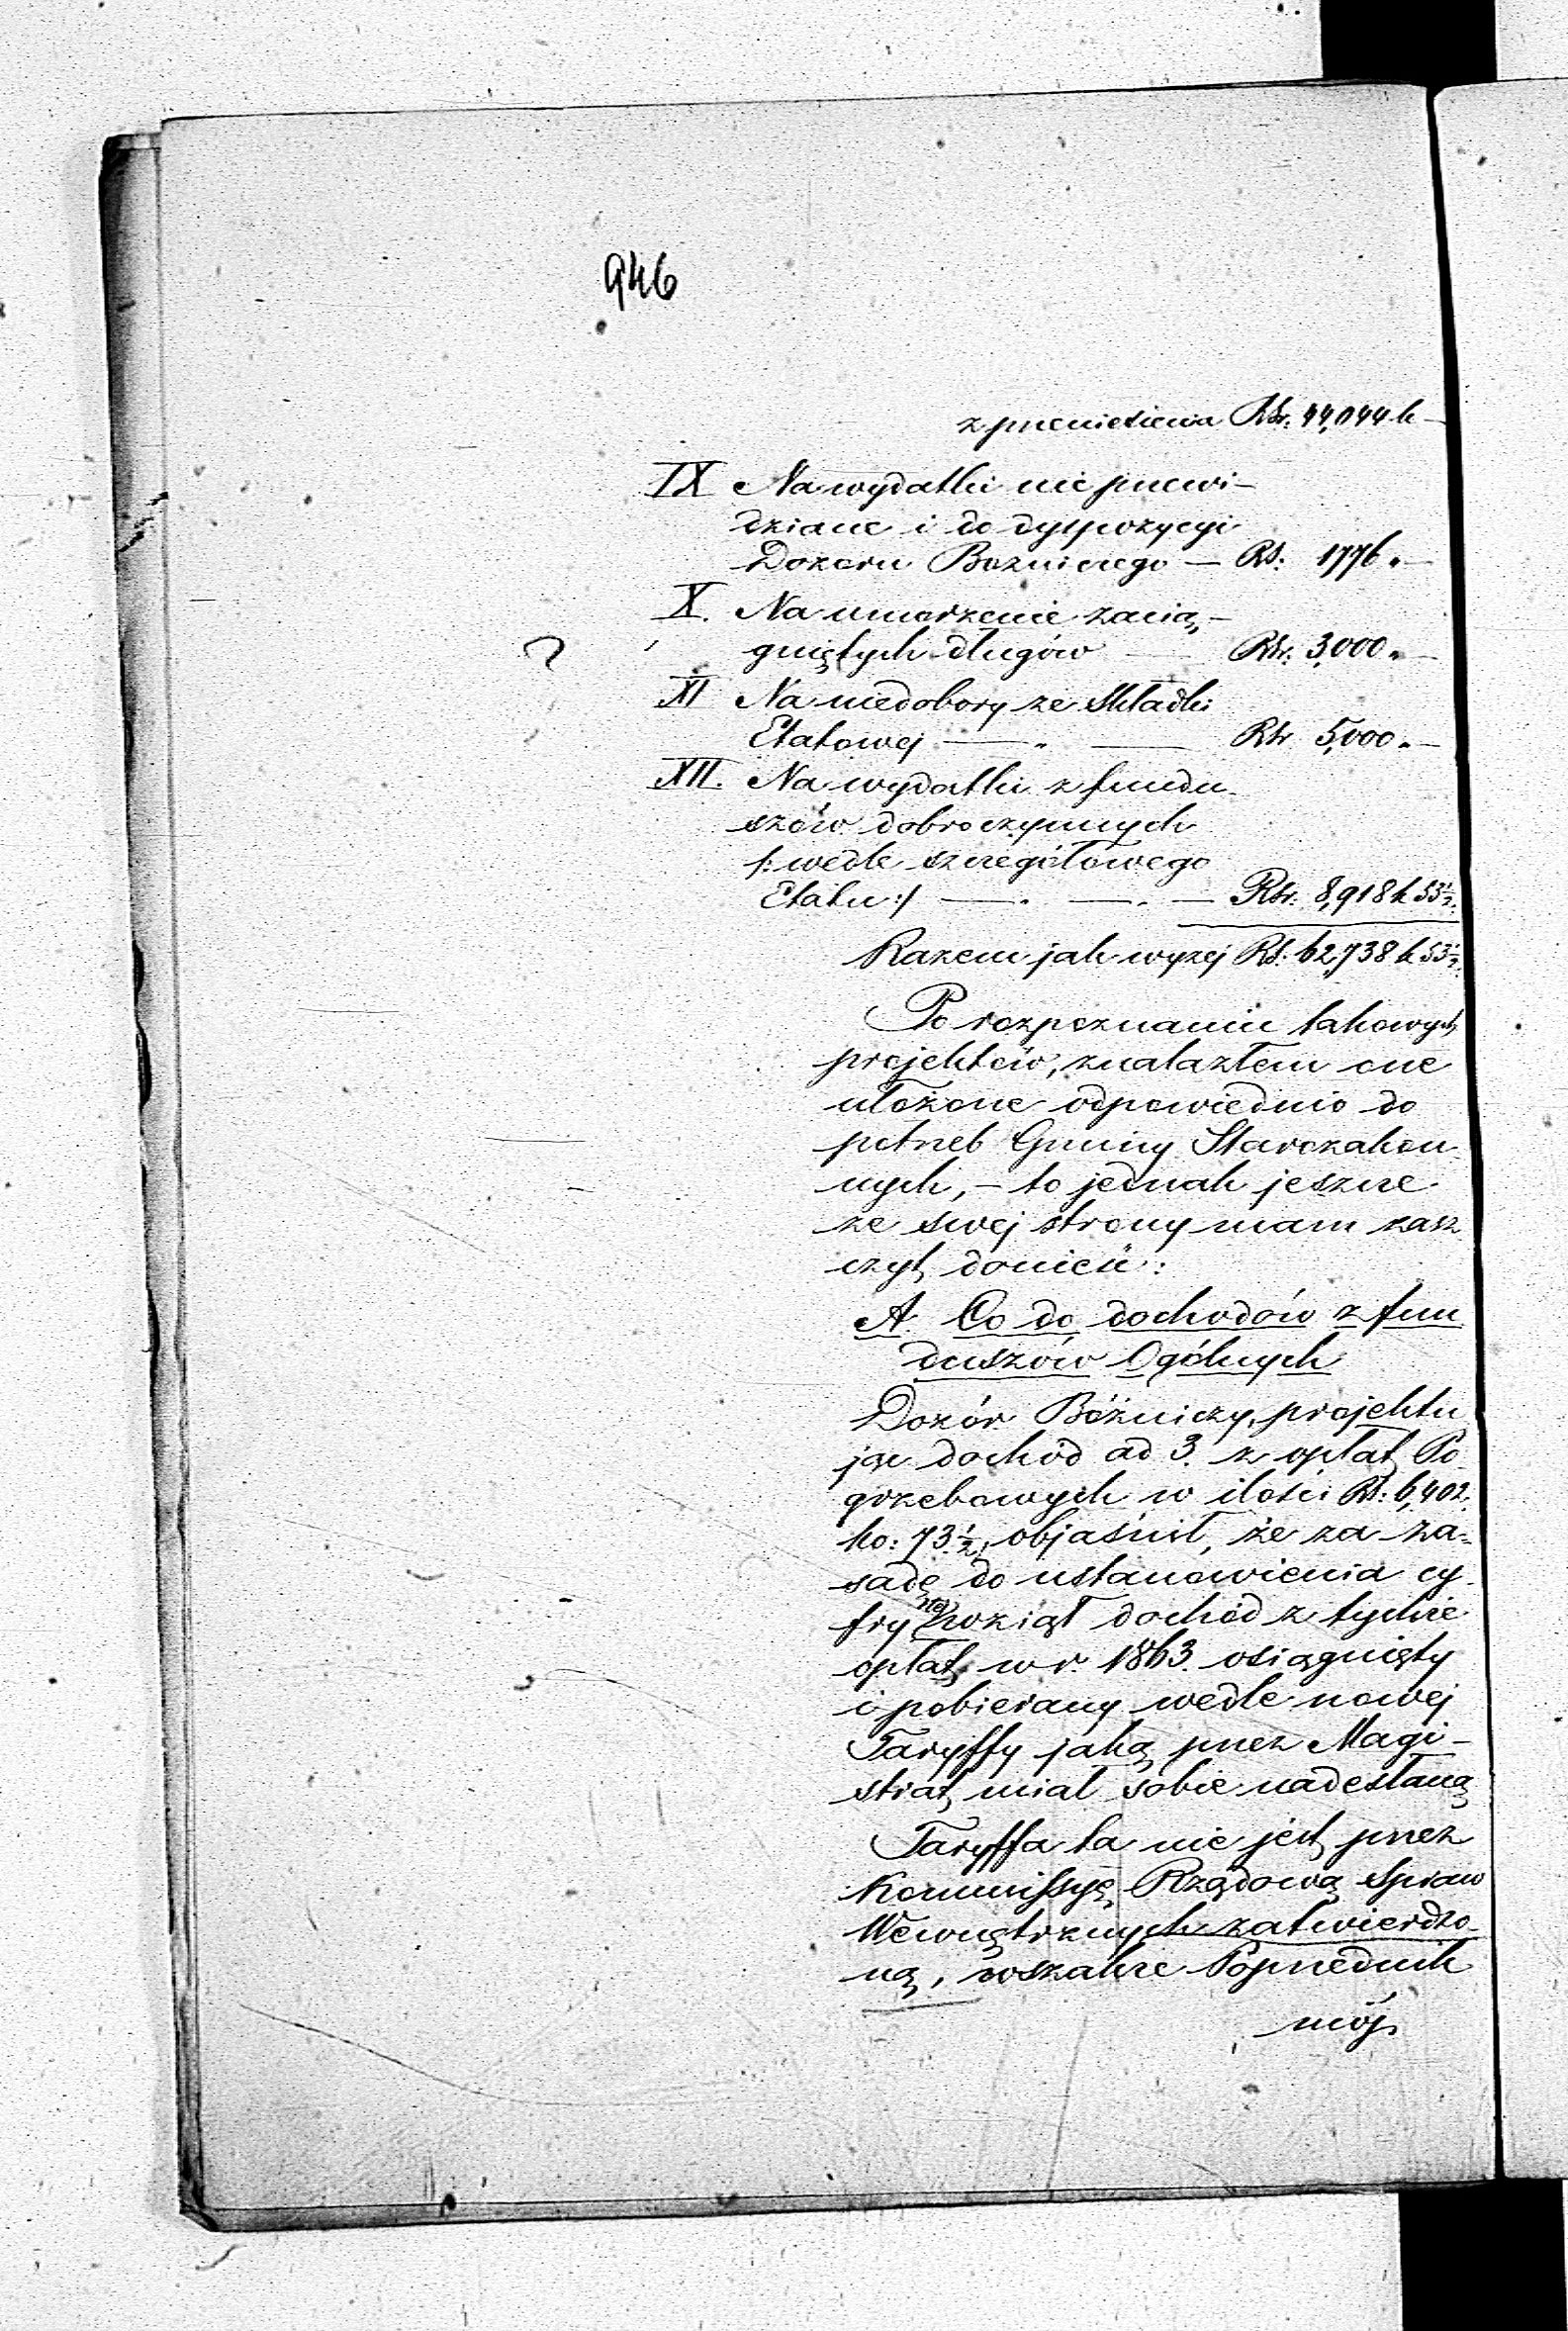 946
z przeniesienia Rsr. 44,044 k —
IX Na wydatki nieprzewi-
dziane i do dyspozycyi
Dozoru Bożniczego — Rs: 1776 „ —
X. Na umorzenie zacią-
gniętych długów — Rsr. 3,000 „ —
XI Na niedobory ze Składki
Etatowej — „ — Rsr 5,000 „ —
XII. Na wydatki z fundu-
szów dobroczynnych
/: wedle szczegółowego
Etatu :/ — . — . — Rsr. 8,918 k 53½.
Razem jak wyżej Rs. 62,738 k 53½.
Po rozpoznaniu takowych
projektów, znalazłem one
ułożone odpowiednio do
potrzeb Gminy Starozakon-
nych, — to jednak jeszcze
ze swej strony mam zasz
czyt donieść:
A. Co do dochodów z fun
duszów Ogólnych
Dozór Bóżniczy, projektu
jąc dochód ad 3. z opłat Po-
grzebowych w ilości Rs: 6,402.
ko: 73½, objaśnił, że za za-
sadę do ustanowienia cy-
fry tej wziął dochód z tychże
opłat w r. 1863. osiągnięty
i pobierany wedle nowej
Taryffy jaką przez Magi-
strat, miał sobie nadesłaną
Taryffa ta nie jest przez
Kommissyę Rządową Spraw
Wewnętrznych zatwierdzo-
ną, wszakże Poprzednik
mój